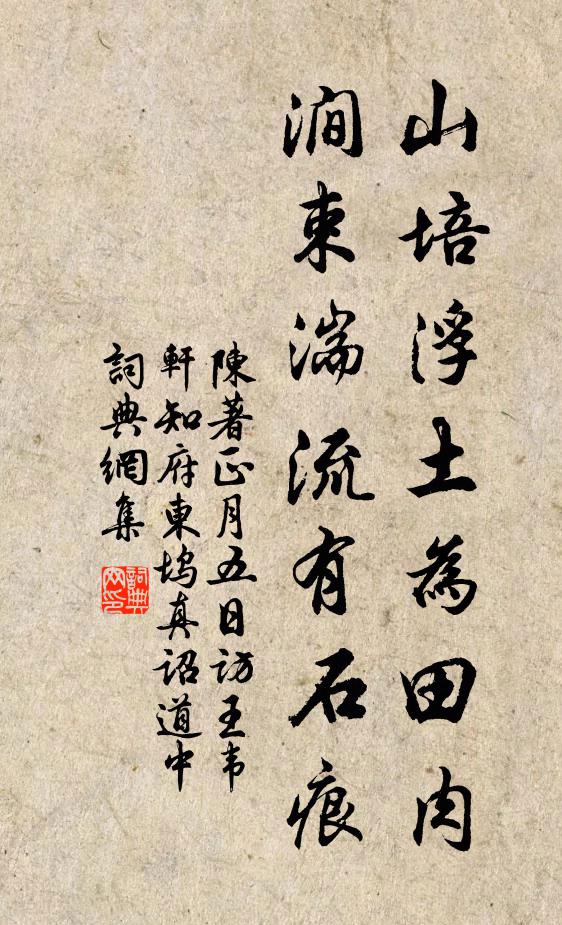 山培浮土為田肉
澗束湍流有石痕
陳著正月五日訪王韋
軒知府東塢真詔道中
詞典網集
詞典
网印